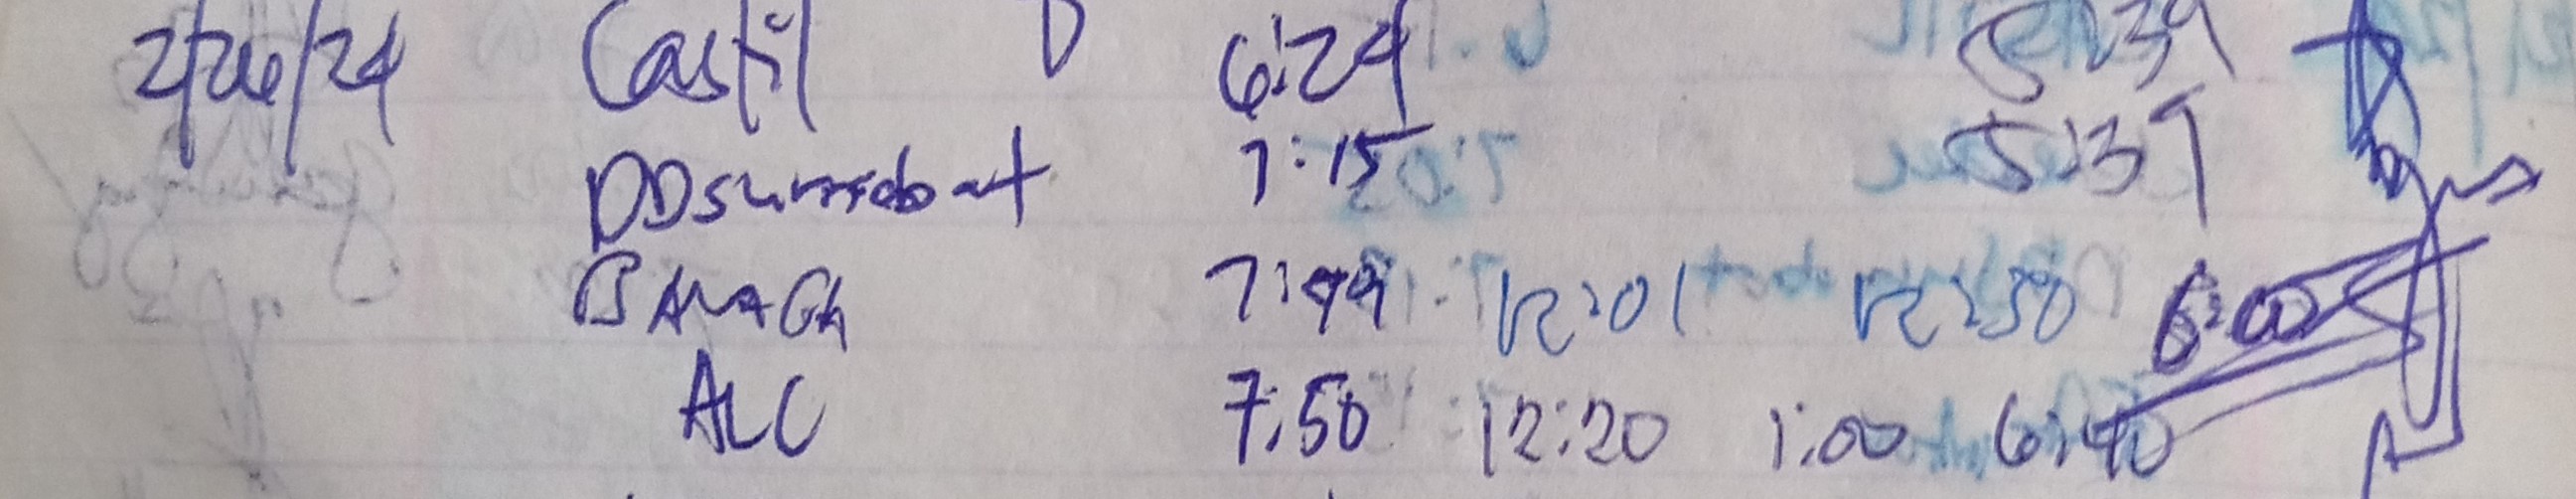 2/26/24 Castil 6:24 5:39
DDsumabat 7:15 5:39
BANAGA 7:49 12:01 12:50 6:00
ALC 7:50 12:20 1:00 6:40